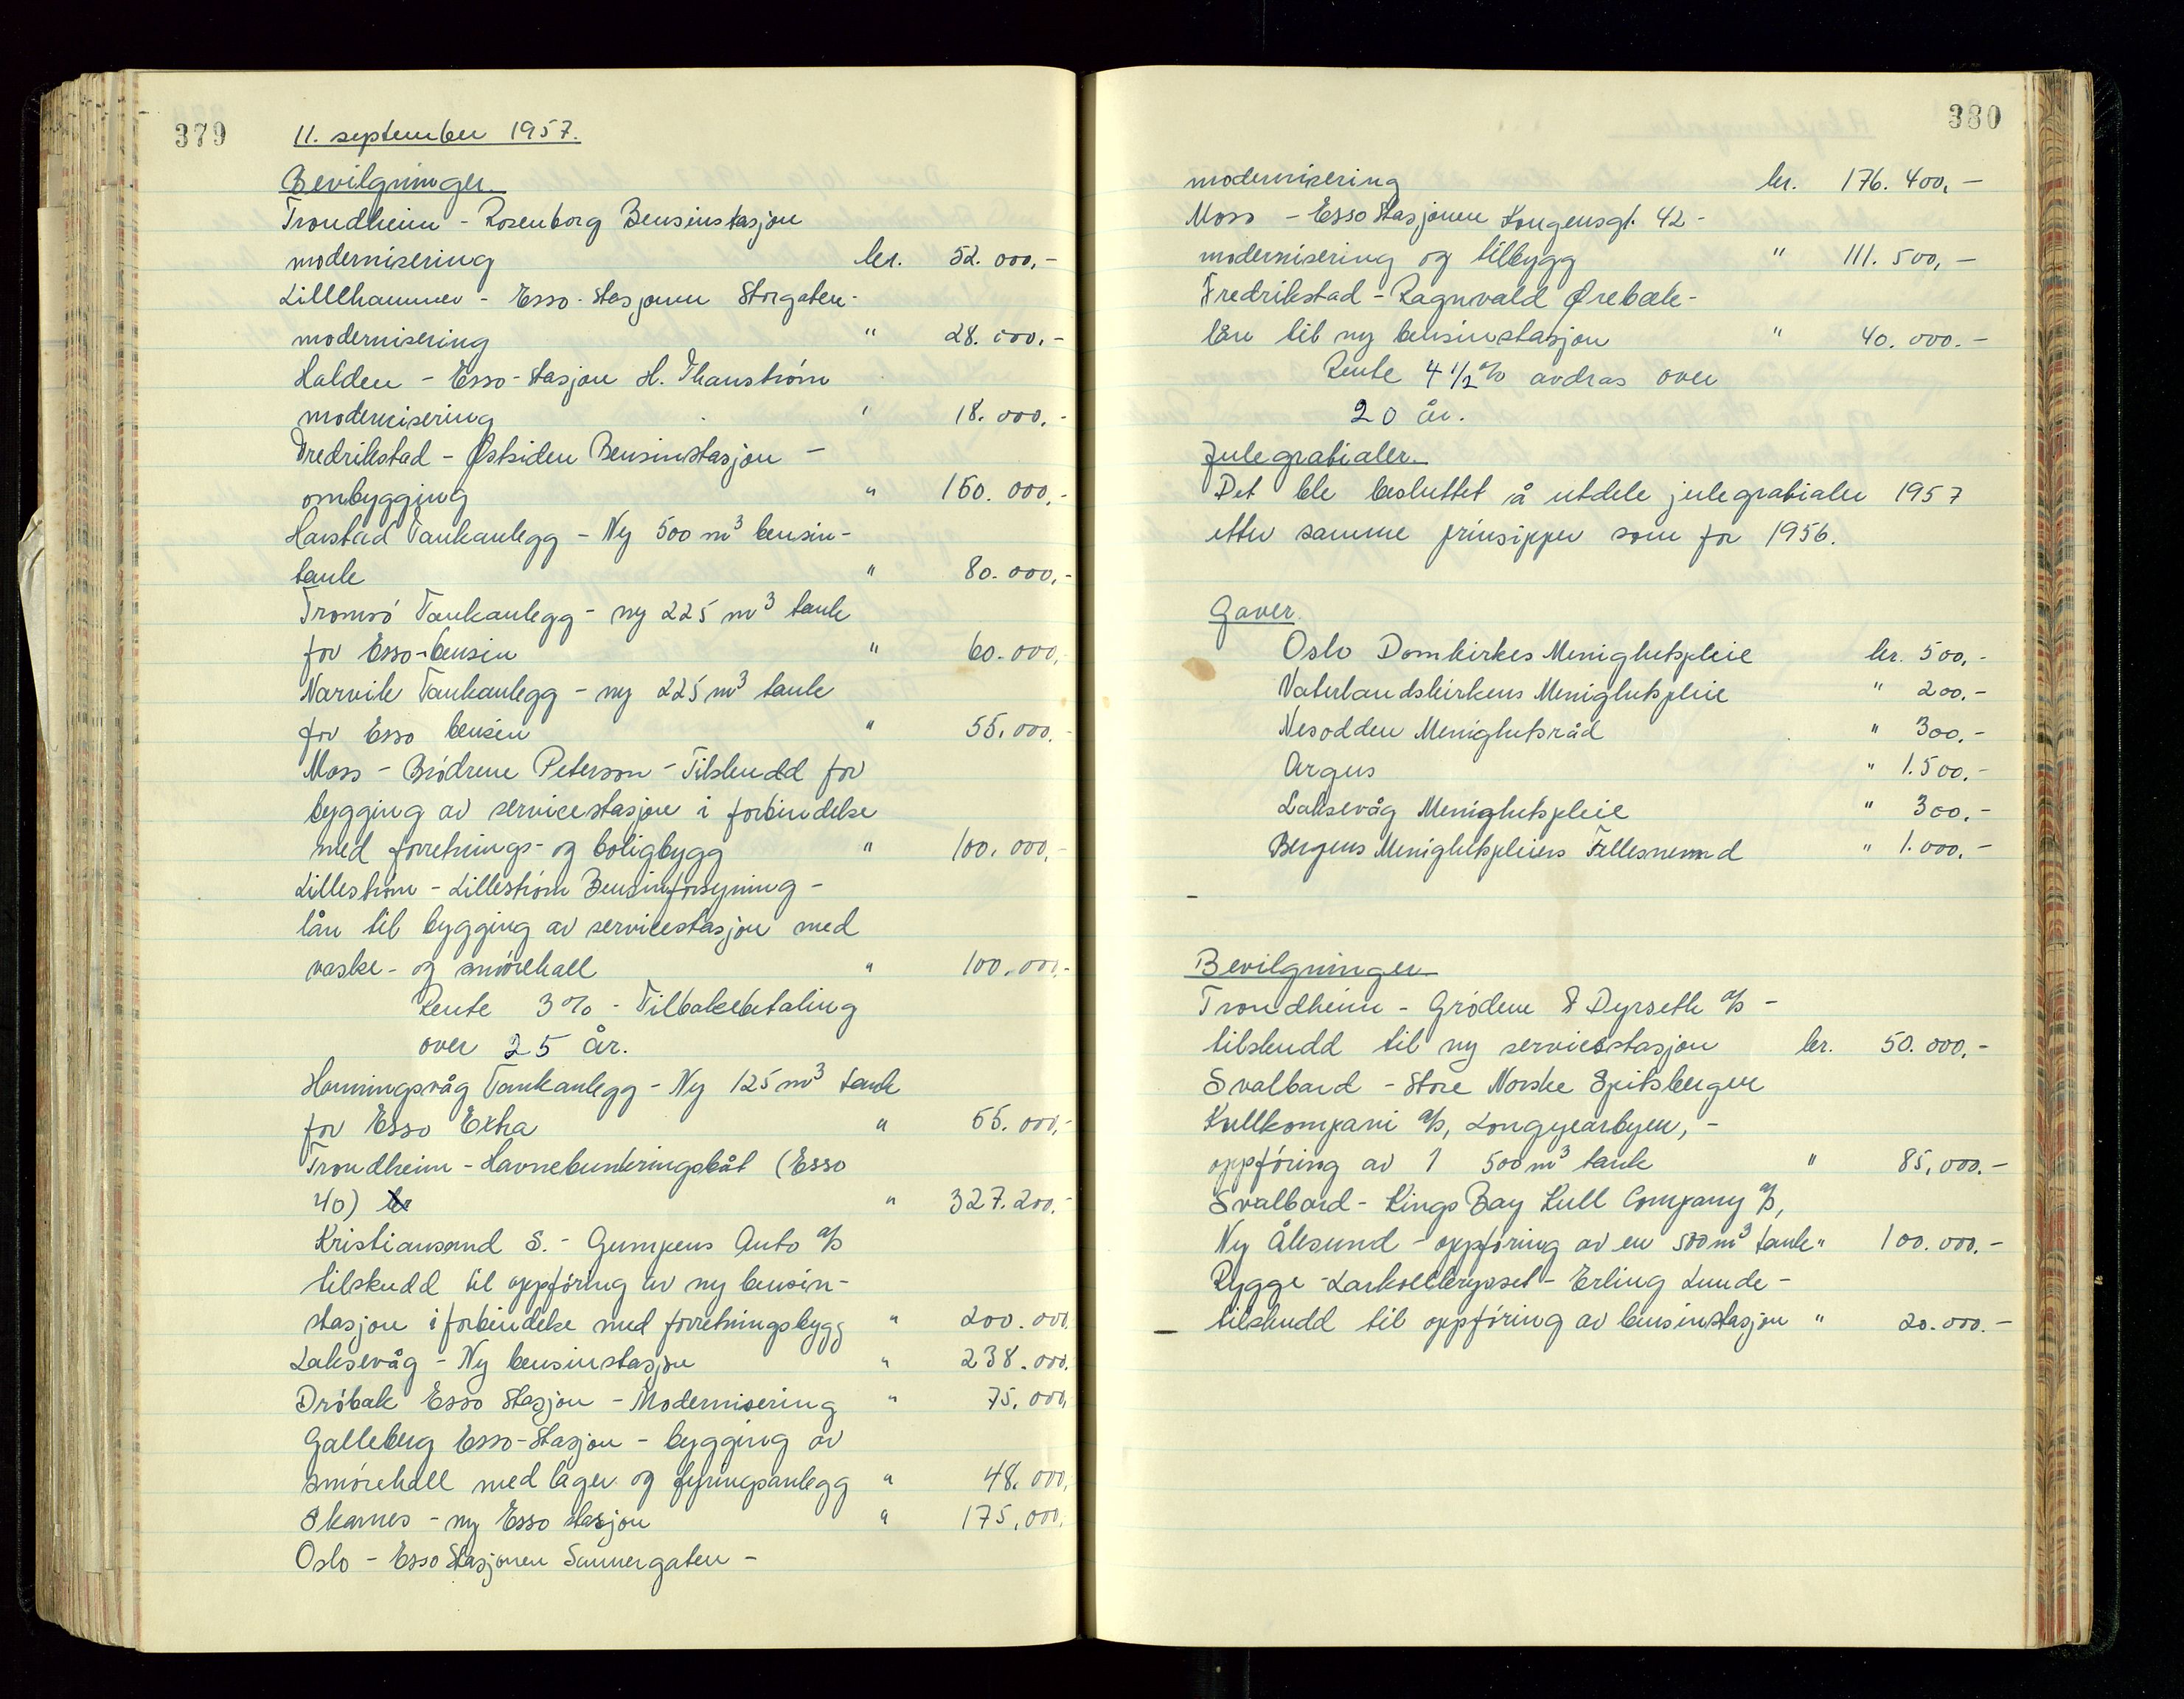 379
11. september 1957.
Bevilgninger.
Trondheim - Rosenborg Bensinstasjon
modernisering kr. 52.000,-
Lillehammer - Esso-Stasjonen Storgaten-
modernisering " 28.000.-
Halden - Esso-Stasjon H. Thanström
modernisering " 18.000.-
Fredrikstad - Østsiden Bensinstasjon -
ombygging " 160.000,-
Harstad Tankanlegg - Ny 500 m³ bensin-
tank " 80.000,-
Tromsö Tankanlegg - ny 225 m³ tank
for Esso-bensin " 60.000,-
Narvik Tankanlegg - ny 225 m³ tank
for Esso bensin " 55.000.-
Moss - Brödrene Peterson - Tilskudd for
bygging av servicestasjon i forbindelse
med forretnings- og boligbygg " 100.000,-
Lilleström - Lilleström Bensinforsyning -
lån til bygging av servicestasjon med
vaske- og smörehall " 100.000.-
Rente 3% - Tilbakebetaling
over 25 år.
Honningsvåg Tankanlegg - Ny 125 m³ tank
for Esso Extra " 55.000,-
Trondheim - Havnebunkringsbåt (Esso
40) kr " 327.200.-
Kristiansand S. - Gumpens Auto a/s
tilskudd til oppföring av ny bensin-
stasjon i forbindelse med forretningsbygg " 200.000.
Laksevåg - Ny bensinstasjon " 238.000.
Dröbak Esso Stasjon - Modernisering " 75.000,
Galleberg Esso-Stasjon - bygging av
smörehall med lager og fyringsanlegg " 48.000,
Skarnes - ny Esso stasjon " 175.000.
Oslo - Esso Stasjonen Sannergaten -
380
modernisering kr. 176.400,-
Moss - Esso Stasjonen Kongensgt. 42 -
modernisering og tilbygg " 111.500,-
Fredrikstad - Ragnvald Ørebæk -
lån til ny bensinstasjon " 40.000.-
Rente 4 1/2 % avdras over
20 år.
Julegratialer.
Det ble besluttet å utdele julegratialer 1957
etter samme prinsipper som for 1956.
Gaver.
Oslo Domkirkes Menighetspleie kr. 500,-
Vaterlandskirkens Menighetspleie " 200.-
Nesodden Menighetsråd " 300,-
Argus " 1.500,-
Laksevåg Menighetspleie " 300,-
Bergens Menighetspleiers Fellesnemnd " 1.000,-
-
Bevilgninger
Trondheim - Grödem & Dyrseth a/s -
tilskudd til ny servicestasjon kr. 50.000,-
Svalbard - Store Norske Spitsbergen
Kullkompani a/s, Longyearbyen, -
oppföring av 1 500 m³ tank " 85.000.-
Svalbard - Kings Bay Kull Company a/s,
Ny Ålesund - oppföring av en 500 m³ tank " 100.000.-
Rygge - Larkollkrysset - Erling Lunde -
tilskudd til oppföring av bensinstasjon " 20.000.-